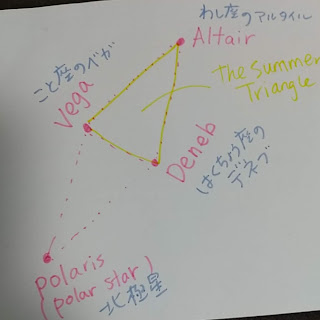 わし座のアルタイル
Altair
こと座のベガ
Vega
the summer
Triangle
Deneb
はくちょう座の
デネブ
polaris
(polar star)
北極星